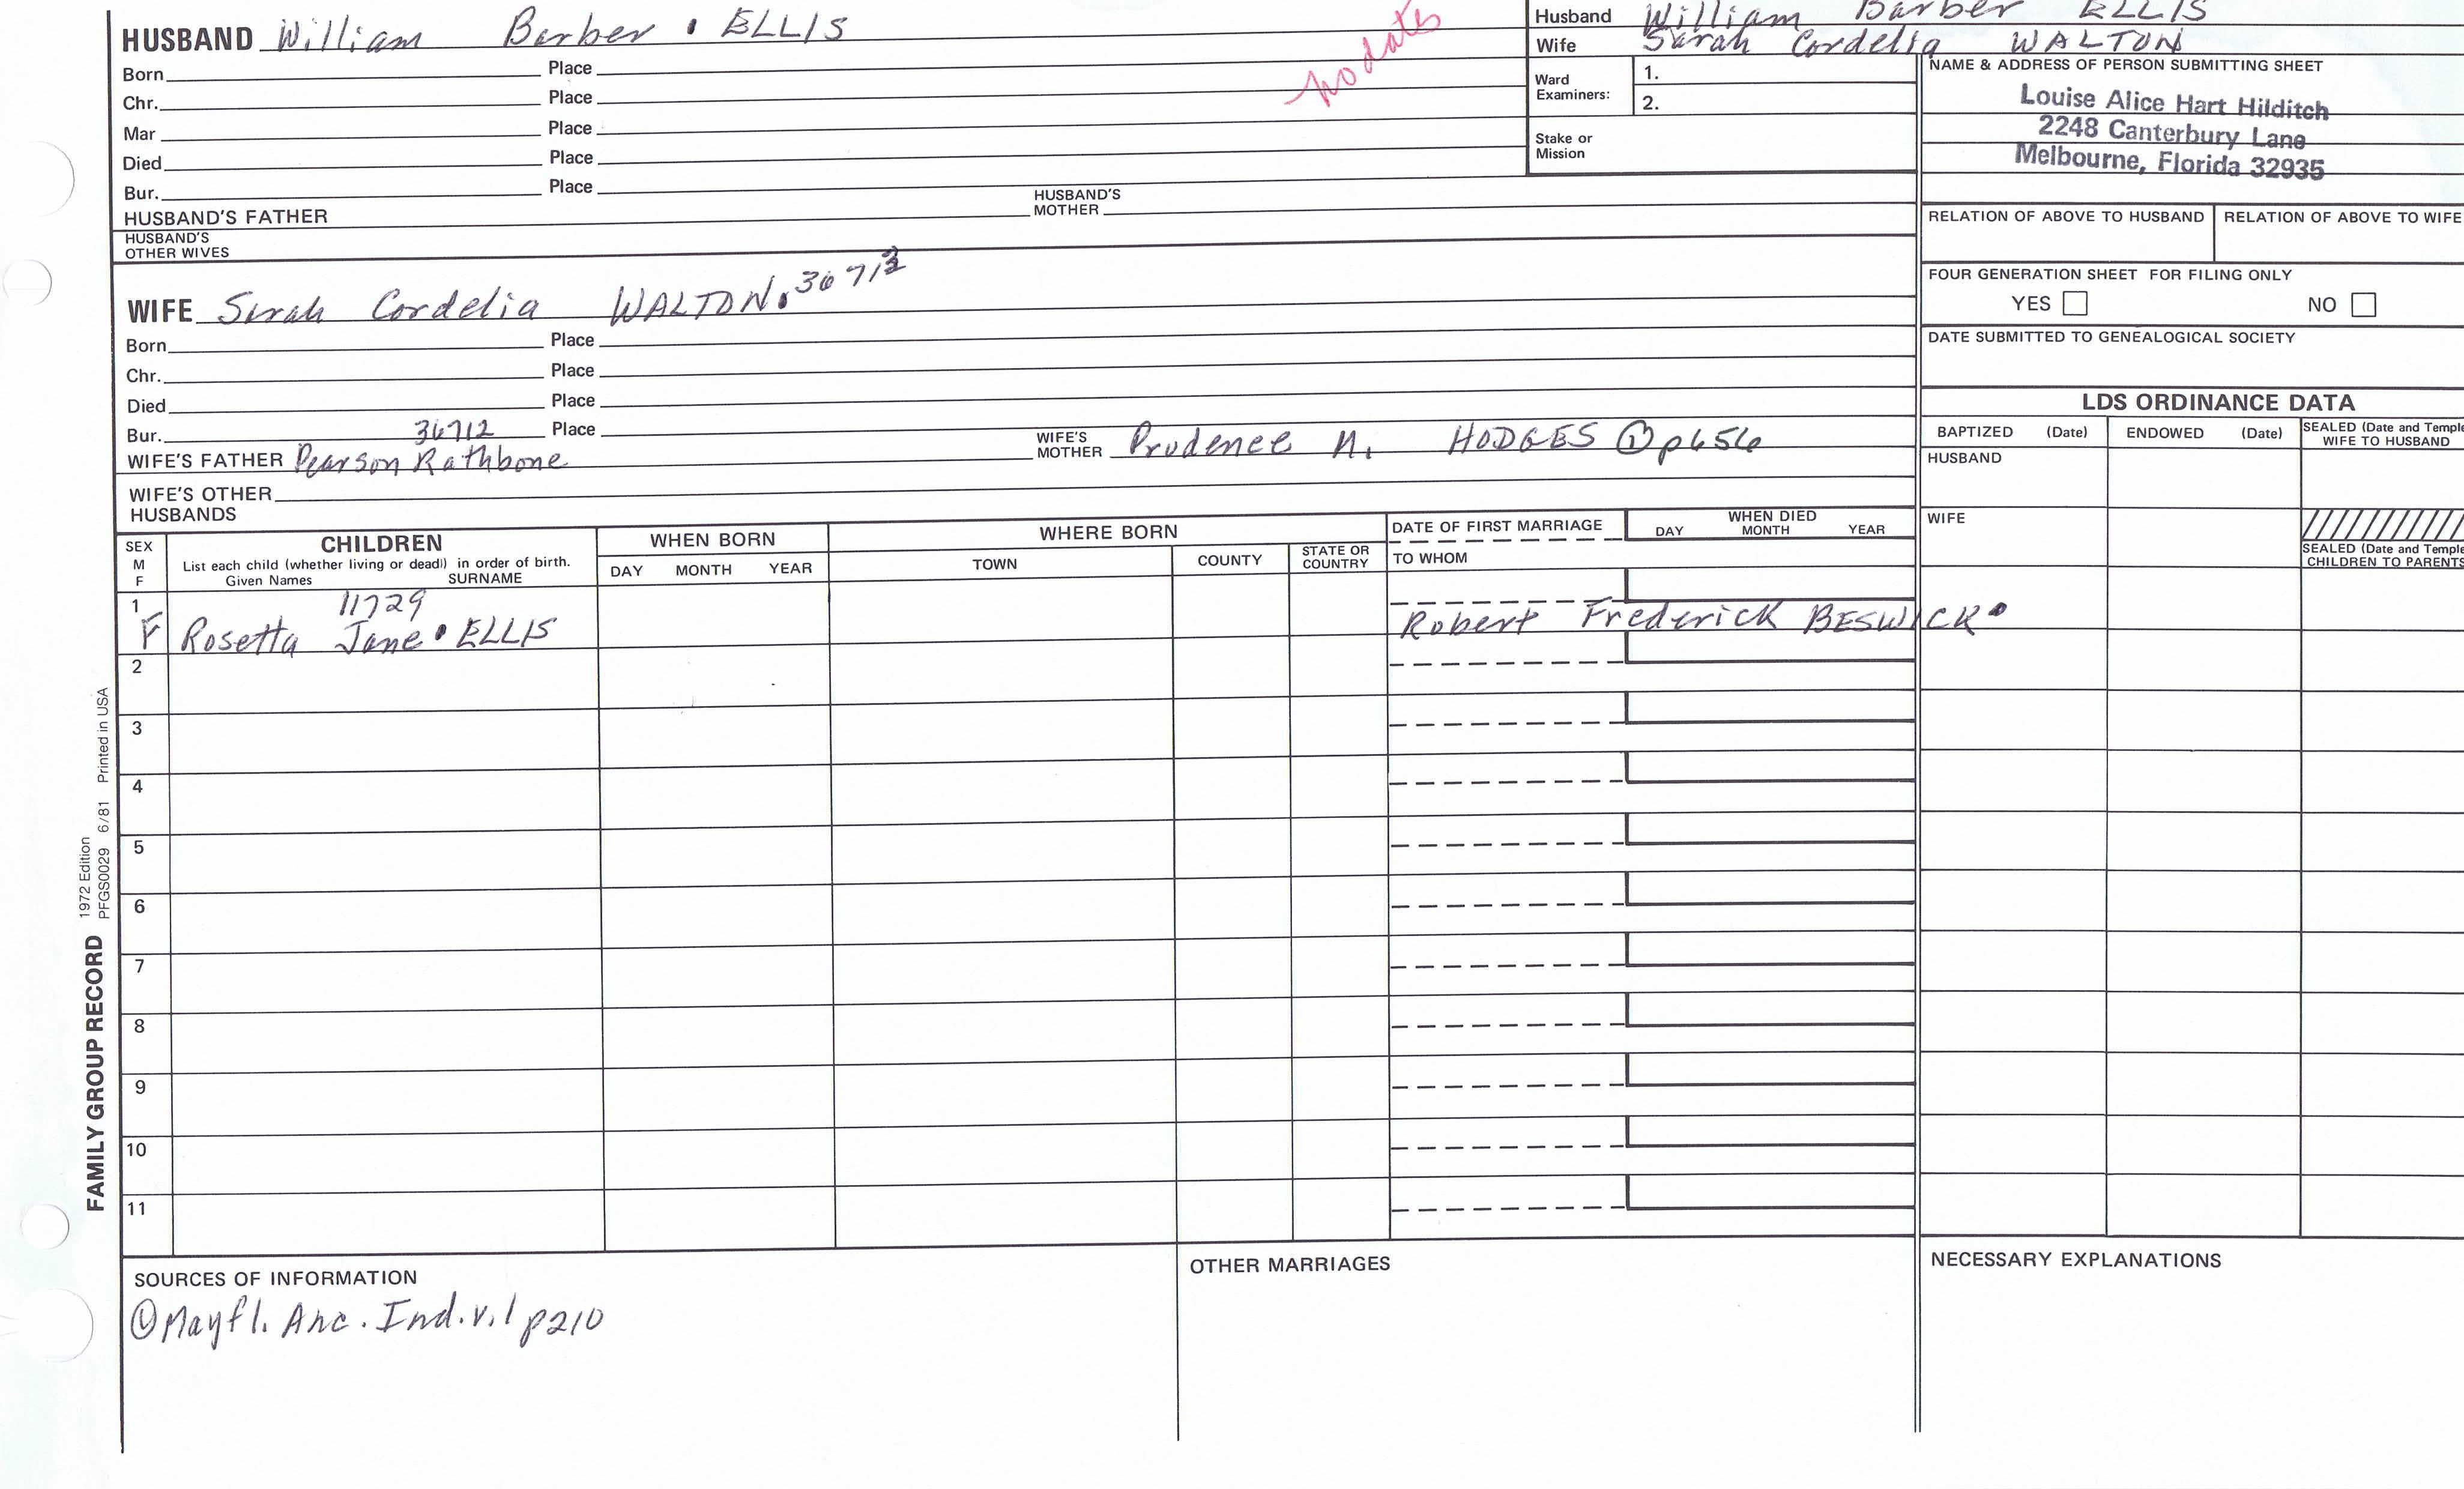 HUSBAND William Barber • ELLIS
Born Place
Chr. Place
Mar Place
Died Place
Bur. Place
HUSBAND'S FATHER HUSBAND'S MOTHER
HUSBAND'S OTHER WIVES
no dates
Husband William Barber ELLIS
Wife Sarah Cordelia WALTON
Ward Examiners: 1.
2.
Stake or Mission
NAME & ADDRESS OF PERSON SUBMITTING SHEET
Louise Alice Hart Hilditch
2248 Canterbury Lane
Melbourne, Florida 32935
RELATION OF ABOVE TO HUSBAND RELATION OF ABOVE TO WIFE
FOUR GENERATION SHEET FOR FILING ONLY
YES NO
DATE SUBMITTED TO GENEALOGICAL SOCIETY
WIFE Sarah Cordelia WALTON • 36713
Born Place
Chr. Place
Died Place
Bur. Place
36712
WIFE'S FATHER Pearson Rathbone WIFE'S MOTHER Prudence N. HODGES ① p656
WIFE'S OTHER HUSBANDS
LDS ORDINANCE DATA
BAPTIZED (Date) ENDOWED (Date) SEALED (Date and Temple WIFE TO HUSBAND
HUSBAND
WIFE
SEALED (Date and Temple CHILDREN TO PARENTS
SEX M F
CHILDREN
List each child (whether living or dead) in order of birth.
Given Names SURNAME
WHEN BORN
DAY MONTH YEAR
WHERE BORN
TOWN COUNTY STATE OR COUNTRY
DATE OF FIRST MARRIAGE
TO WHOM
WHEN DIED
DAY MONTH YEAR
1 11729
F Rosetta Jane • ELLIS Robert Frederick BESWICK •
2
3
4
5
6
7
8
9
10
11
SOURCES OF INFORMATION
① Mayfl. Anc. Ind. v.1 p210
OTHER MARRIAGES
NECESSARY EXPLANATIONS
FAMILY GROUP RECORD
1972 Edition
PFGS0029 6/81 Printed in USA